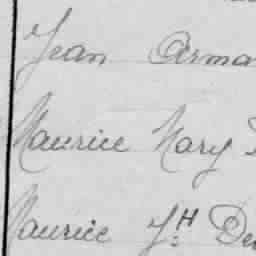 Jean Arma
Maurice Mary
Maurice J.H De